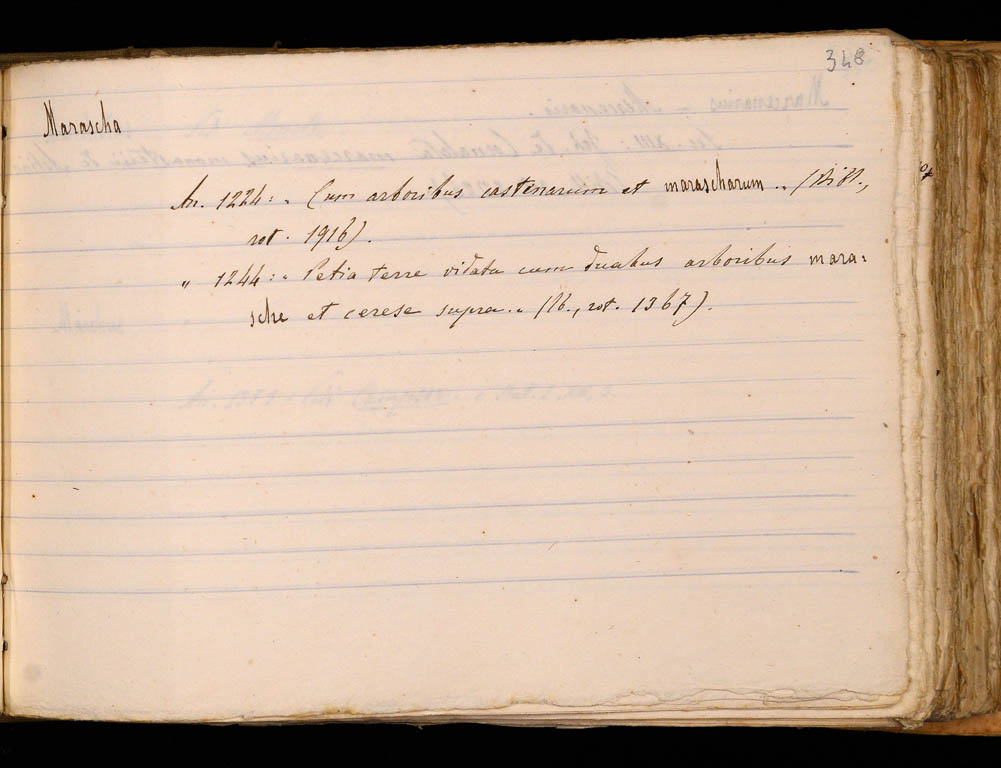 348
Marascha
An. 1224: „ Cum arboribus castenarum et marascharum „ (Bibl.,
rot. 1916).
„ 1244: „ Petia terre vidata cum duabus arboribus mara=
sche et cerese supra „ (Ib., rot. 1367).